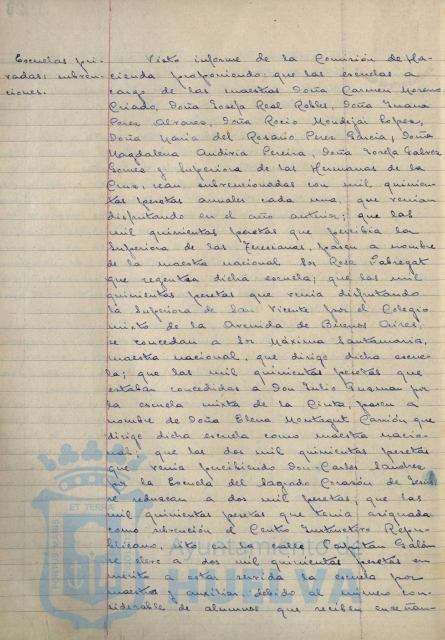 Escuelas pri-
vadas: subven-
ciones.
Visto informe de la Comisión de Ha-
cienda proponiendo: que las escuelas a
cargo de las maestras Doña Carmen Moreno
Criado, Doña Josefa Real Robles, Doña Juana
Perez Alvarez, Doña Rocio Mendejar Lopez,
Doña Maria del Rosario Perez Garcia, Doña
Magdalena Pereira, Doña Josefa Galvez
Gomez y Superiora de las Hermanas de la
Cruz, sean subvencionadas con mil quinien-
tas pesetas anuales cada una, que venian
disfrutando en el año anterior; que las
mil quinientas pesetas que percibia la
Superiora de las Teresianas, pasen a nombre
de la maestra nacional Sor Rosa Fabregat
que regenta dicha escuela; que las mil
quinientas pesetas que venia disfrutando
la Superiora de San Vicente por el Colegio
mixto de la Avenida de Buenos Aires,
se concedan a Sor Máxima Santamaria,
maestra nacional, que dirige dicha escue-
la; que las mil quinientas pesetas que
estaban concedidas a Don Julio Guzman por
la escuela mixta de la Cinta, pasen a
nombre de Doña Elena Montagut Carrión que
dirige dicha escuela como maestra nacio-
nal; que las dos mil quinientas pesetas
que venia percibiendo Don Carlos Sanchez
por la Escuela del Sagrado Corazón de Jesús,
se reduzcan a dos mil pesetas; que las
mil quinientas pesetas que tenia asignada
como subvención el Centro Instructivo Repu-
blicano, sito en la calle Capitan Galán
se eleve a dos mil quinientas pesetas en
mérito a estar servida la escuela por
maestro y auxiliar debido al número con-
siderable de alumnos que reciben enseñan-
Ayuntamiento de
HUELVA